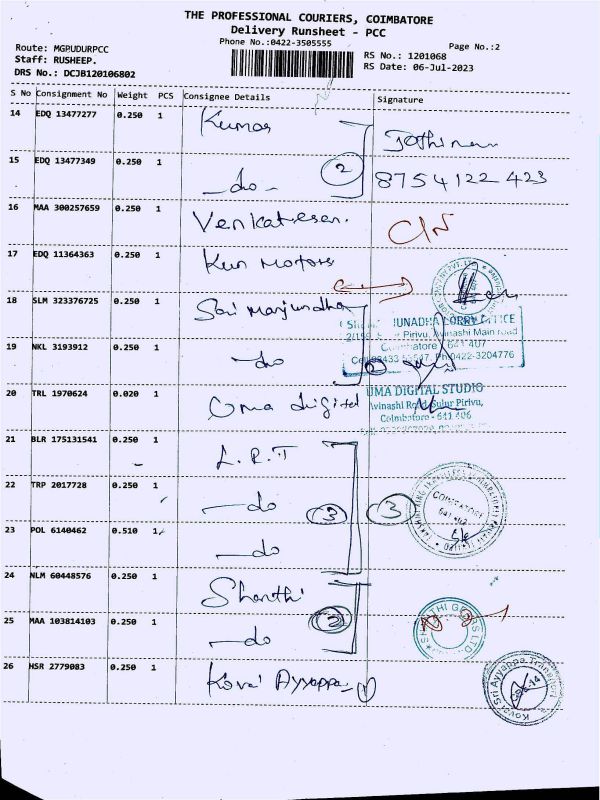 THE PROFESSIONAL COURIERS, COIMBATORE
Delivery Runsheet - PCC
Phone No.:0422-3505555
Page No.:2
Route: MGPUDURPCC
Staff: RUSHEEP.
DRS No.: DCJB120106802
RS No.: 1201068
RS Date: 06-Jul-2023
S No Consignment No Weight PCS Consignee Details Signature
14 EDQ 13477277 0.250 1 Kumar
15 EDQ 13477349 0.250 1 —do— 2 8754122423
16 MAA 300257659 0.250 1 Venkatesan.
17 EDQ 11364363 0.250 1 Kun Motors
18 SLM 323376725 0.250 1 Sai Manjundha
JUNADHA LORRY OFFICE
Pirivu, Avinashi Main road
641 407
Ph:0422-3204776
19 NKL 3193912 0.250 1 —do 2
20 TRL 1970624 0.020 1 Uma digital
UMA DIGITAL STUDIO
Avinashi Road, Sulur Pirivu,
Coimbatore - 641 406
21 BLR 175131541 0.250 1 L.R.T
22 TRP 2017728 0.250 1 —do 3 3
COIMBATORE
23 POL 6140462 0.510 1 —do
24 NLM 60448576 0.250 1 Shanthi
25 MAA 103814103 0.250 1 —do 2
SHANTHI GEARS LTD
26 HSR 2779083 0.250 1 Kovai Ayyappa
Kovai Sri Ayyappa Transport